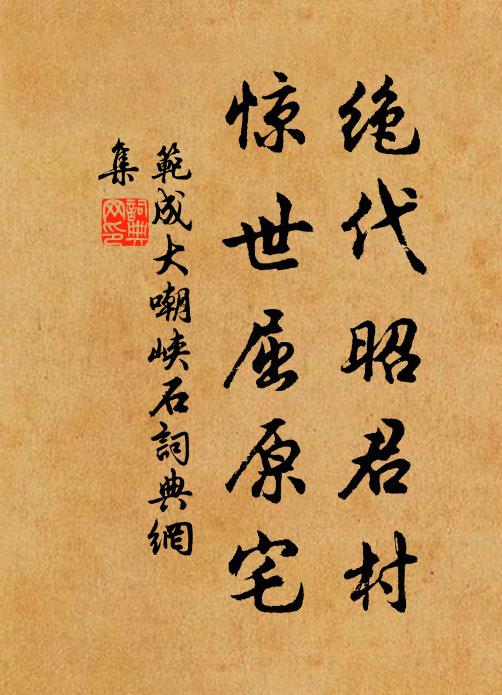 绝代昭君村
惊世屈原宅
範成大嘲峡石詞典網
集
詞典
网印